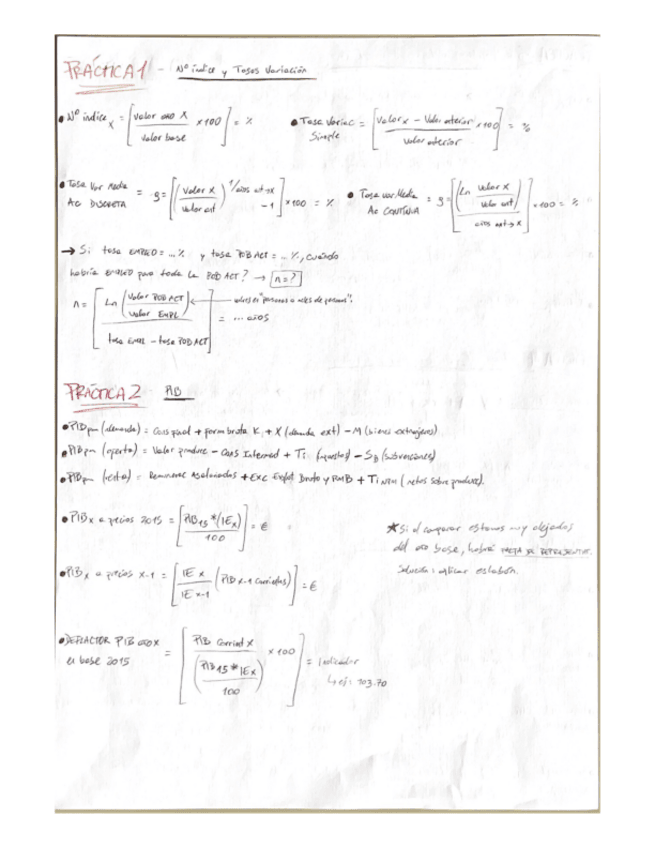 PRÁCTICA 1 - Nº índice y Tasas Variación
• Nº índice x = [valor año X / valor base × 100] = %
• Tasa Variac Simple = [Valor x - Valor anterior / Valor anterior × 100] = %
• Tasa Var Media Ac DISCRETA = g = [(Valor x / Valor ant)^1/años ant→x - 1] × 100 = %
• Tasa var. Media Ac CONTINUA = g = [Ln (valor x / valor ant) / años ant→x] × 100 = %
→ Si tasa EMPLEO = ... % y tasa POB ACT = ... %, cuándo
habría EMPLEO para toda la POB ACT? → n=?
n = [Ln (Valor POB ACT / Valor EMPL) / tasa EMPL - tasa POB ACT] = ... años
valores "personas o miles de personas".
PRÁCTICA 2 - PIB
• PIBpm (demanda) = Cons + form bruta K + X (demanda ext) - M (bienes extranjeros)
• PIBpm (oferta) = Valor produce - Cons Intermed + Ti (impuestos) - Sb (subvenciones)
• PIBpm (renta) = Remunerac Asalariados + Exc Explot Bruto y RMB + Ti (netos sobre product).
• PIBx a precios 2015 = [PIB15 * (IEx) / 100] = €
• PIBx a precios x-1 = [IE x / IE x-1 (PIB x-1 corrientes)] = €
★ Si al comparar estamos muy alejados
del año base, habrá FALTA DE REPRESENTIV.
Solución: aplicar eslabón.
• DEFLACTOR PIB año x en base 2015 = [PIB corrient x / (PIB15 * IEx / 100) × 100] = indicador
↳ ej: 103.70